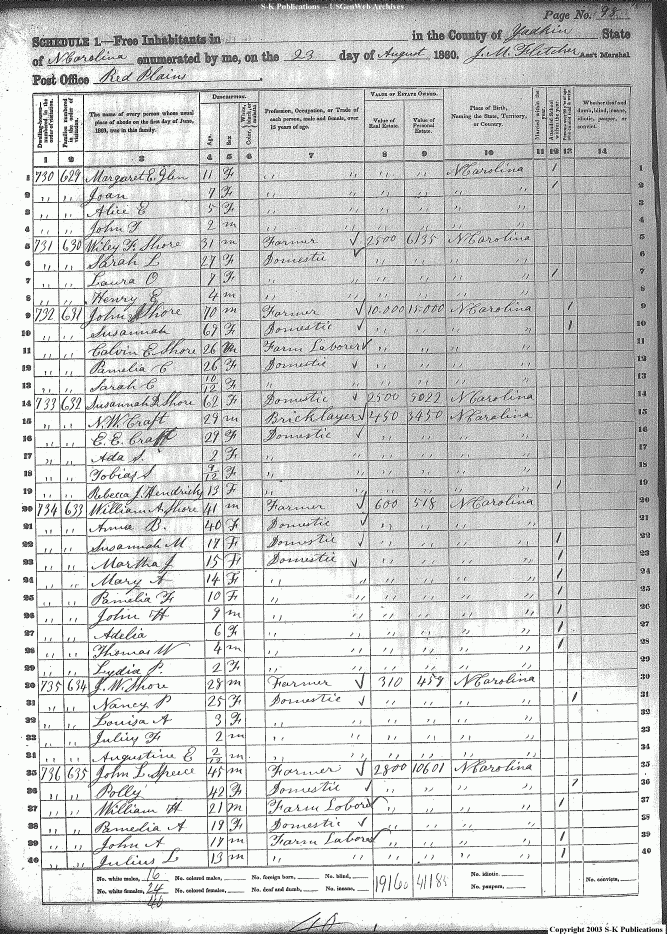 S-K Publications -- USGenWeb Archives
Page No. 98
SCHEDULE 1.—Free Inhabitants in in the County of Yadkin State
of N Carolina enumerated by me, on the 23 day of August 1860. J. M. Fletcher Ass't Marshal
Post Office Red Plains
Dwelling-houses—numbered in the order of visitation.
Families numbered in the order of visitation.
The name of every person whose usual place of abode on the first day of June, 1860, was in this family.
DESCRIPTION.
Age.
Sex
Color,
Profession, Occupation, or Trade of each person, male and female, over 15 years of age.
VALUE OF ESTATE OWNED.
Value of Real Estate.
Value of Personal Estate.
Place of Birth, Naming the State, Territory, or Country.
Married within the year.
Attended School within the year.
Whether deaf and dumb, blind, insane, idiotic, pauper, or convict.
1 2 3 4 5 6 7 8 9 10 11 12 13 14
1 730 629 Margaret E. Glen 11 F " " " " N Carolina / 1
2 " " Joan 7 F " " " " " " / 2
3 " " Alice E 5 F " " " " " " 3
4 " " John T 2 m " " " " " " 4
5 731 630 Wiley F. Shore 31 m Farmer 2500 6135 N Carolina 5
6 " " Sarah L 27 F Domestic " " " " 6
7 " " Laura O 7 F " " " " " " / 7
8 " " Henry E 4 m " " " " " " 8
9 732 631 John Shore 70 m Farmer 10.000 15.000 N Carolina / 9
10 " " Susannah 69 F Domestic " " " " / 10
11 " " Calvin E Shore 26 m Farm Laborer " " " " 11
12 " " Pamelia C 26 F Domestic " " " " 12
13 " " Sarah C 10/12 F " " " " " " 13
14 733 632 Susannah D Shore 62 F Domestic 2500 5022 N Carolina 14
15 " " N. W. Craft 29 m Bricklayer 450 3450 N Carolina 15
16 " " E. E. Craft 29 F Domestic " " " " 16
17 " " Ada S. 2 F " " " " " " 17
18 " " Tobias S 9/12 F " " " " " " 18
19 " " Rebecca J. Hendricks 13 F " " " " " " / 19
20 734 633 William A. Shore 41 m Farmer 600 518 N Carolina 20
21 " " Anna B. 40 F Domestic " " " " 21
22 " " Susannah M 17 F Domestic " " " " / 22
23 " " Martha J 15 F Domestic " " " " / 23
24 " " Mary A 14 F " " " " " " / 24
25 " " Pamelia F 10 F " " " " " " / 25
26 " " John H 9 m " " " " " " / 26
27 " " Adelia 6 F " " " " " " / 27
28 " " Thomas W 4 m " " " " " " / 28
29 " " Lydia P. 2 F " " " " " " 29
30 735 634 J. W. Shore 28 m Farmer 310 459 N Carolina 30
31 " " Nancy P 25 F Domestic " " " " / 31
32 " " Louisa A 3 F " " " " " " 32
33 " " F 2 m " " " " " " 33
34 " " Augustine E 2/12 m " " " " " " 34
35 736 635 John L. Speece 45 m Farmer 2800 10601 N Carolina 35
36 " " Polly 42 F Domestic " " " " 36
37 " " William H 21 m Farm Loborer " " " " / 37
38 " " Pamelia A 19 F Domestic " " " " / 38
39 " " John A 17 m Farm Laborer " " " " / 39
40 " " Julius L 13 m " " " " " " / 40
No. white males, 16 No. colored males, No. foreign born, No. blind, 19160 41185 No. idiotic, No. convicts,
No. white females, 24 No. colored females, No. deaf and dumb, No. insane, No. paupers,
40
40
Copyright 2003 S-K Publications